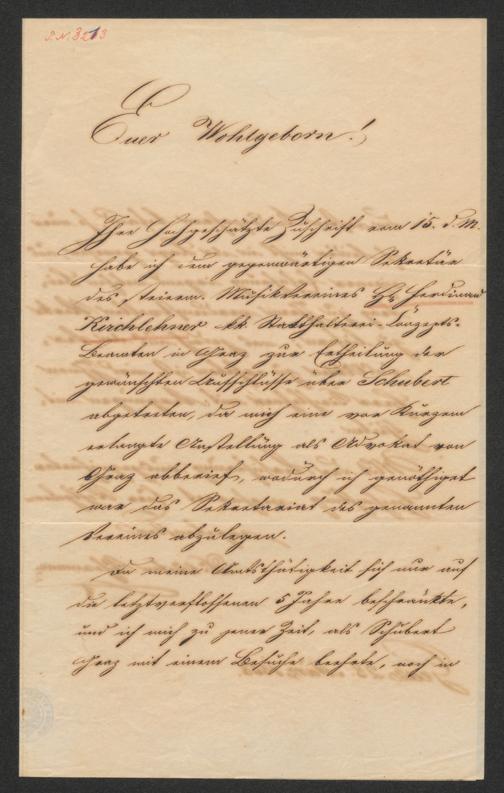 P.N. 3213
Euer Wohlgeborn!
Ihre hochgeschätzte Zuschrift vom 15. d. M.
habe ich dem gegenwärtigen Sekretär
des steierm. Musikvereines Hr Ferdinand
Kirchlehner kk. Statthalterei-Conzepts-
Beamten in Graz zur Ertheilung der
gewünschten Aufschlüsse über Schubert
abgetreten, da mich eine vor Kurzem
erlangte Anstellung als Advokat von
Graz abberief, wodurch ich genöthiget
war das Sekretariat des genannten
Vereines abzulegen.
Da meine Amtsthätigkeit sich nur auf
die letztverflossenen 5 Jahre beschränkte,
und ich mich zu jener Zeit, als Schubert
Graz mit einem Besuche beehrte, noch in